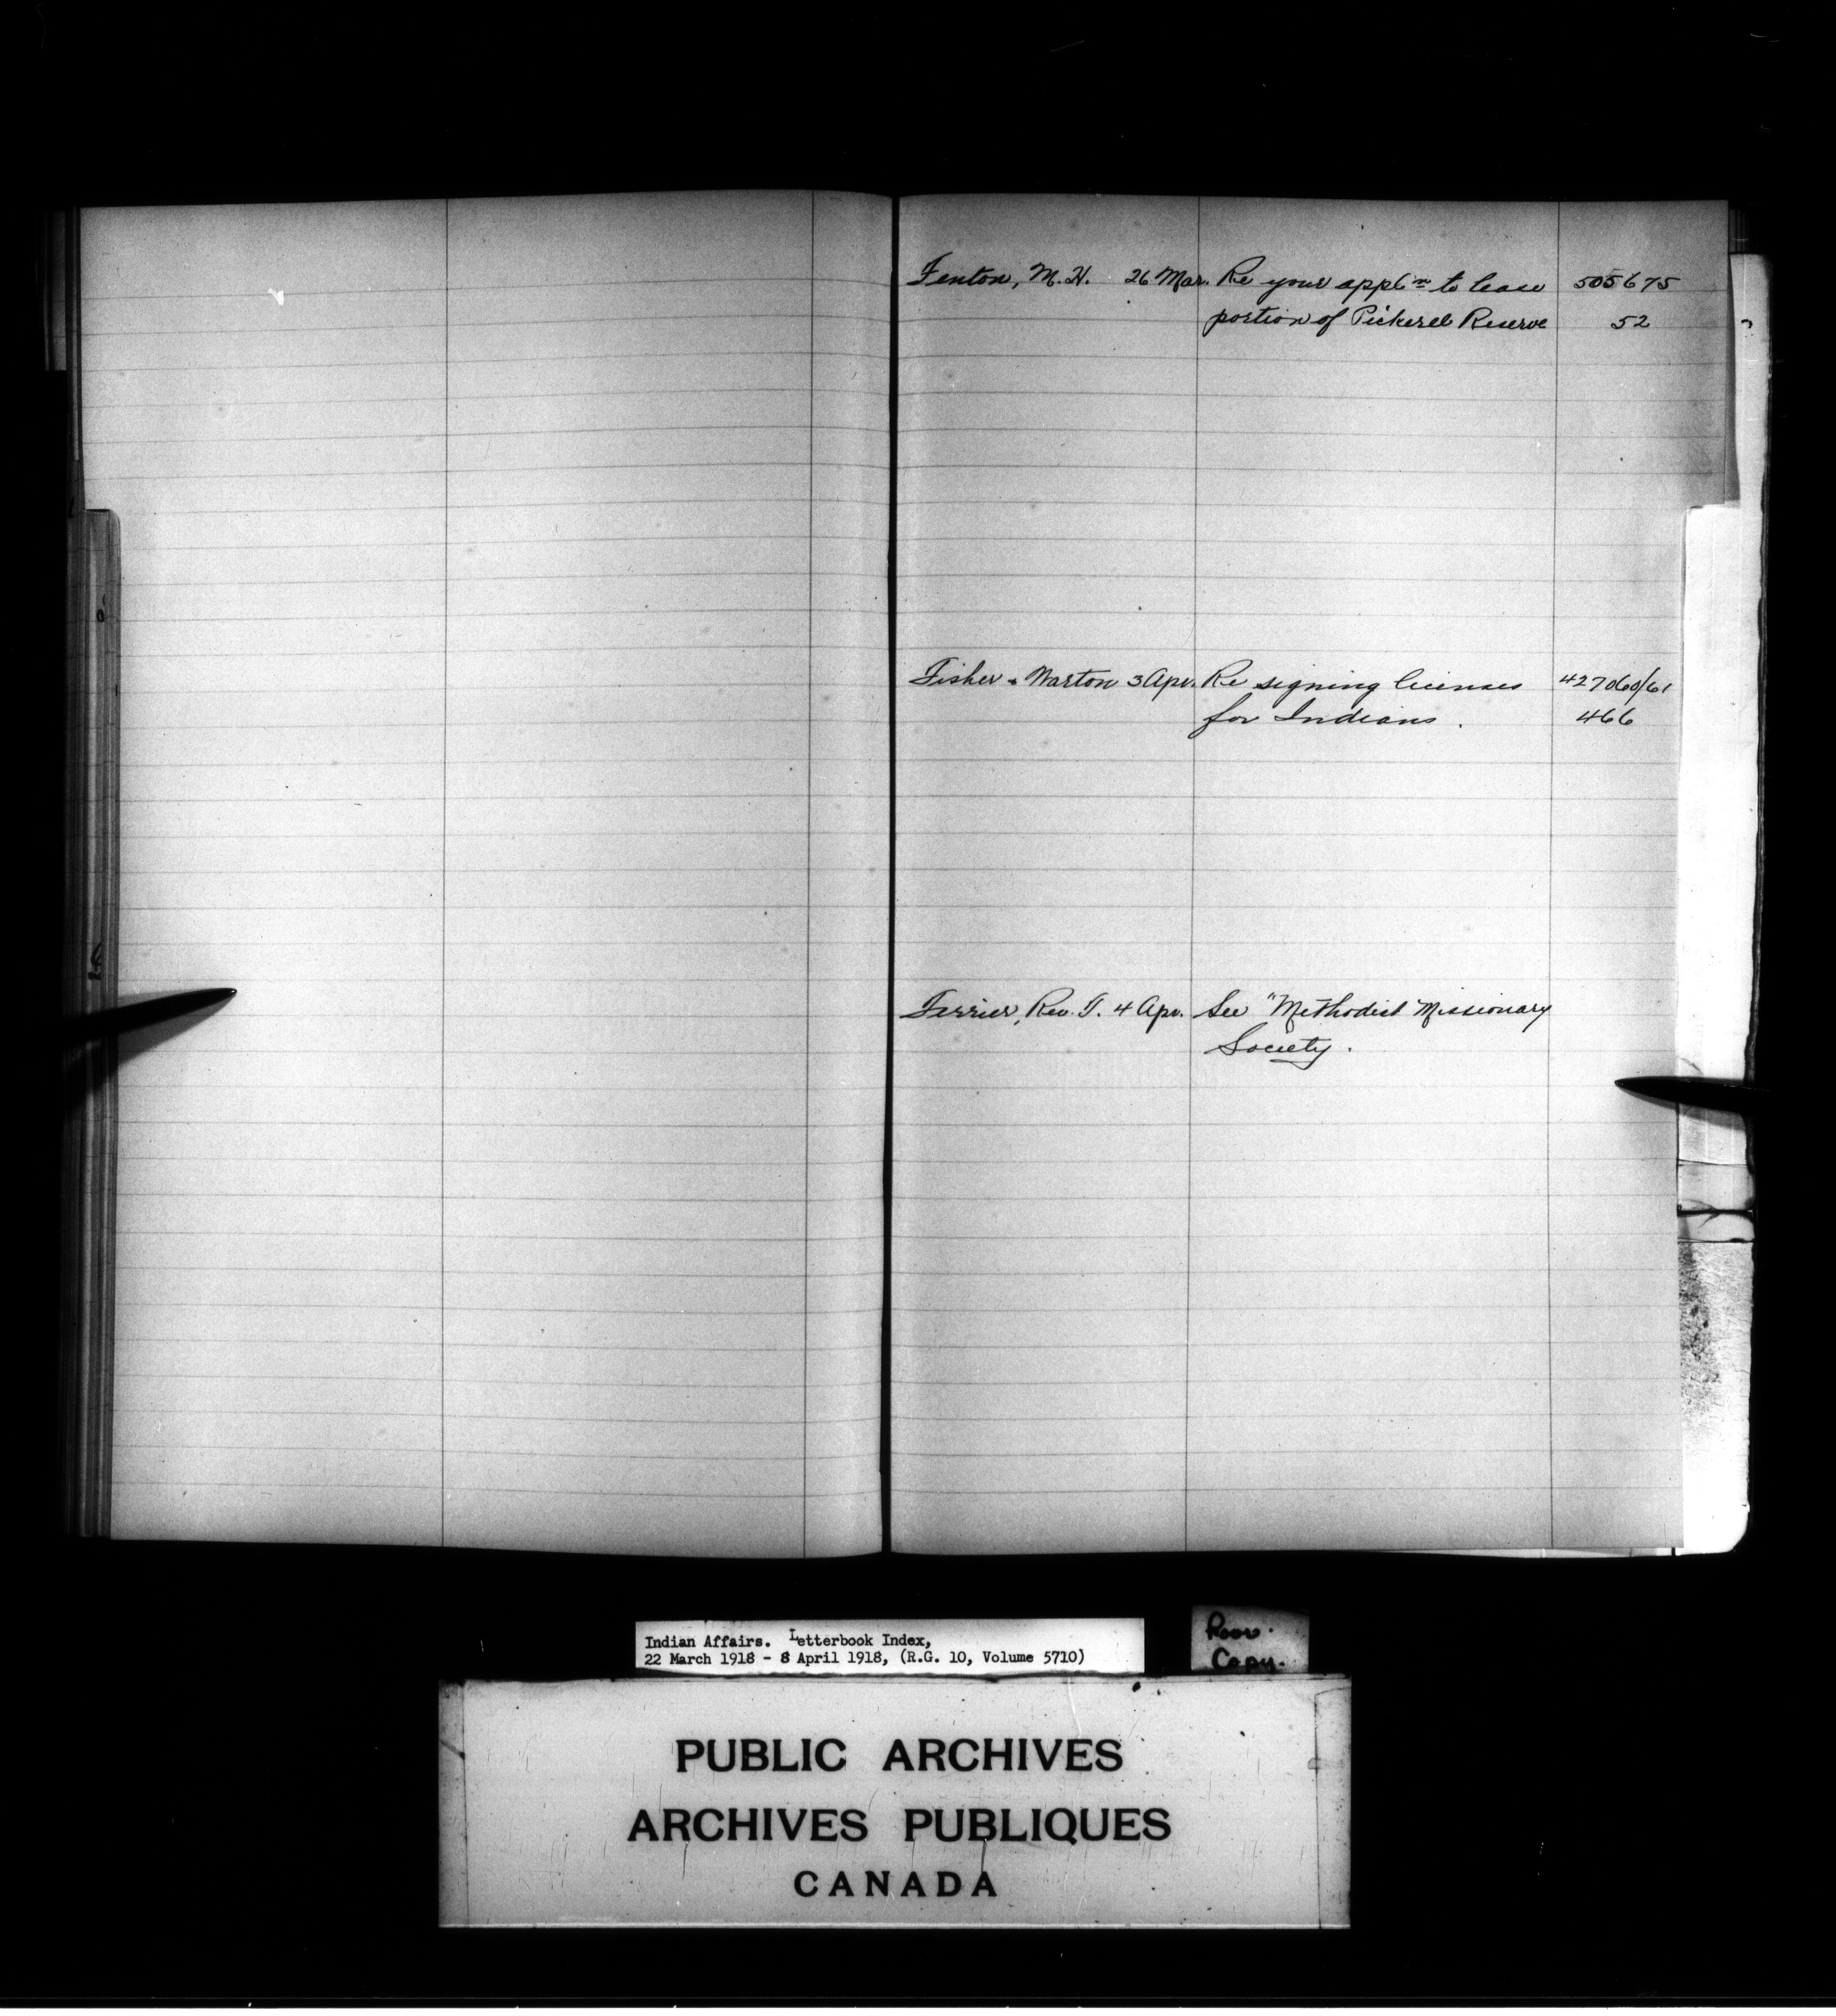 Fenton, M. H. 26 Mar. Re your applⁿ to lease 505675
portion of Pickerel Reserve 52
Fisher & Warton 3 Apr. Re signing licenses 427060/61
for Indians. 466
Ferrier, Rev. T. 4 Apr. See "Methodist Missionary
Society.
Indian Affairs. Letterbook Index,
22 March 1918 - 8 April 1918, (R.G. 10, Volume 5710)
Poor.
Copy.
PUBLIC ARCHIVES
ARCHIVES PUBLIQUES
CANADA